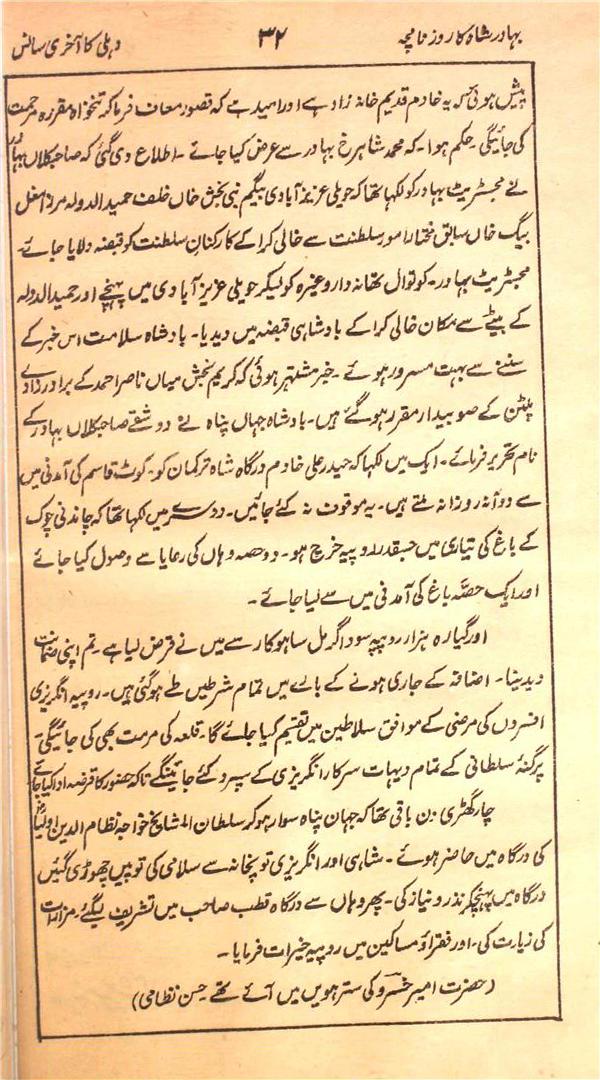 بہادر شاہ کا روزنامچہ ۳۲ دہلی کا آخری سانس
پیش ہوئی کہ یہ خادم قدیم خانہ زاد ہے اور امید ہے کہ قصور معاف فرما کر تنخواہ مقررہ مرحمت
کی جائیگی۔ حکم ہوا۔ کہ محمد شاہرخ بہادر سے عرض کیا جائے۔ اطلاع دی گئی کہ صاحبکلاں بہادر
نے مجسٹریٹ بہادر کو لکھا تھا کہ حویلی عزیز آبادی بیگم نبی بخش خاں خلف حمید الدولہ مرزا مغل
بیگ خاں سابق مختار امور سلطنت سے خالی کرا کے کارکنان سلطنت کو قبضہ دلایا جائے۔
مجسٹریٹ بہادر۔ کوتوال تھانہ دار وغیرہ کو لیکر حویلی عزیز آبادی میں پہنچے اور حمید الدولہ
کے بیٹے سے مکان خالی کرا کے بادشاہی قبضہ میں دیدیا۔ بادشاہ سلامت اس خبر کے
سننے سے بہت مسرور ہوئے۔ خبر مشتہر ہوئی کہ کریم بخش میاں ناصر احمد کے برادر زادے
پلٹن کے صوبیدار مقرر ہو گئے ہیں۔ بادشاہ جہاں پناہ نے دو شقے صاحبکلاں بہادر کے
نام تحریر فرمائے۔ ایک میں لکھا کہ حیدر علی خادم درگاہ شاہ ترکمان کو۔ کوٹ قاسم کی آمدنی میں
سے دو آنہ روزانہ ملتے ہیں۔ یہ موقوف نہ کئے جائیں۔ دوسرے میں لکھا تھا کہ چاندنی چوک
کے باغ کی تیاری میں جسقدر روپیہ خرچ ہو۔ دو حصہ وہاں کی رعایا سے وصول کیا جائے
اور ایک حصہ باغ کی آمدنی میں سے لیا جائے۔
اور گیارہ ہزار روپیہ سوداگر مل ساہوکار سے میں نے قرض لیا ہے۔ تم اپنی ضمانت
دیدینا۔ اضافہ کے جاری ہونے کے بارے میں تمام شرطیں طے ہو گئی ہیں۔ روپیہ انگریزی
افسروں کی مرضی کے موافق سلاطین میں تقسیم کیا جائے گا۔ قلعہ کی مرمت بھی کی جائیگی۔
پرگنۂ سلطانی کے تمام دیہات سرکار انگریزی کے سپرد کئے جائینگے تاکہ حضور کا قرضہ ادا کیا جائے
چار گھڑی دن باقی تھا کہ جہان پناہ سوار ہو کر سلطان المشایخ خواجہ نظام الدین اولیاؒ
کی درگاہ میں حاضر ہوئے۔ شاہی اور انگریزی توپخانہ سے سلامی کی توپیں چھوڑی گئیں
درگاہ میں پہنچکر نذر و نیاز کی۔ پھر وہاں سے درگاہ قطب صاحب میں تشریف لیگئے۔ مزارات
کی زیارت کی۔ اور فقراؤ مساکین میں روپیہ خیرات فرمایا۔
(حضرت امیر خسروؒ کی سترھویں میں آئے تھے حسن نظامی)